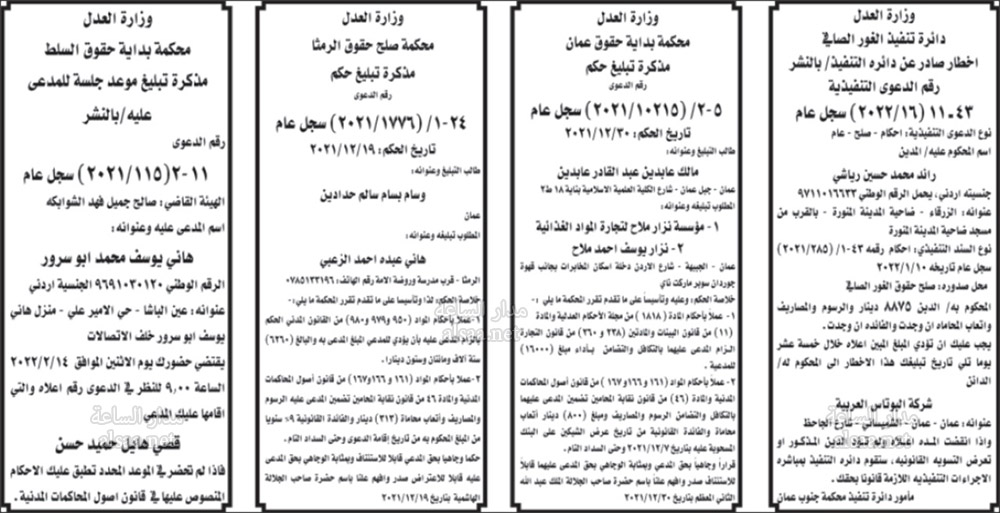 وزارة العدل
دائرة تنفيذ الغور الصافي
اخطار صادر عن دائره التنفيذ/ بالنشر
رقم الدعوى التنفيذية
٤٣ـ ١١ (٢٠٢٢/١٦) سجل عام
نوع الدعوى التنفيذية: احكام - صلح - عام
اسم المحكوم عليه/ المدين
رائد محمد حسين رياشي
جنسيته اردني، يحمل الرقم الوطني ٩٧١١٠١٦٦٣٣
عنوانه: الزرقاء - ضاحية المدينة المنورة - بالقرب من
مسجد ضاحية المدينة المنورة
نوع السند التنفيذي: احكام رقمه ٤٣-١ (٢٠٢١/٢٨٥)
سجل عام تاريخه ٢٠٢٢/١/١٠
محل صدوره: صلح حقوق الغور الصافي
المحكوم به/ الدين ٨٨٧٥ دينار والرسوم والمصاريف
واتعاب المحاماه ان وجدت والفائده ان وجدت.
يجب عليك ان تؤدي المبلغ المبين اعلاه خلال خمسة عشر
يوما تلي تاريخ تبليغك هذا الاخطار الى المحكوم له/
الدائن
شركة البوتاس العربية
عنوانه: عمان - عمان - الشميساني - شارع الجاحظ
واذا انقضت المده اعلاه ولم تؤد الدين المذكور او
تعرض التسويه القانونيه، ستقوم دائره التنفيذ بمباشره
الاجراءات التنفيذيه اللازمه قانونا بحقك.
مأمور دائرة تنفيذ محكمة جنوب عمان
وزارة العدل
محكمة بداية حقوق عمان
مذكرة تبليغ حكم
رقم الدعوى
٥-٢/ (٢٠٢١/١٠٢١٥) سجل عام
تاريخ الحكم: ٢٠٢١/١٢/٣٠
طالب التبليغ وعنوانه:
مالك عابدين عبد القادر عابدين
عمان - جبل عمان - شارع الكلية العلمية الاسلامية بناية ١٨ ط٢
المطلوب تبليغه وعنوانه:
١- مؤسسة نزار ملاح لتجارة المواد الغذائية
٢- نزار يوسف احمد ملاح
عمان - الجبيهة - شارع الاردن دخلة اسكان المخابرات بجانب قهوة
جوردان سوبر ماركت تاي
خلاصة الحكم: وعليه وتأسيساً على ما تقدم تقرر المحكمة ما يلي:
١- عملا بأحكام المادة (١٨١٨) من مجلة الأحكام العدلية والمادة
(١١) من قانون البينات والمادتين (٢٣٨ و ٢٦٠) من قانون التجارة
الزام المدعى عليهما بالتكافل والتضامن بأداء مبلغ (١٦٠٠٠)
للمدعية.
٢- عملا بأحكام المواد (١٦١ و ١٦٦ و ١٦٧) من قانون أصول المحاكمات
المدنية والمادة (٤٦) من قانون نقابة المحامين تضمين المدعى عليهما
بالتكافل والتضامن الرسوم والمصاريف ومبلغ (٨٠٠) دينار أتعاب
محاماة والفائدة القانونية من تاريخ عرض الشيكين على البنك
المسحوبة عليه بتاريخ ٢٠٢١/١٢/٧ وحتى السداد التام.
قرارا وجاهيا بحق المدعي وبمثابة الوجاهي بحق المدعى عليهما قابلاً
للاستئناف صدر وأفهم علنا بأسم حضرة صاحب الجلالة الملك عبد الله
الثاني المعظم بتاريخ ٢٠٢١/١٢/٣٠
وزارة العدل
محكمة صلح حقوق الرمثا
مذكرة تبليغ حكم
رقم الدعوى
٢٤-١/ (٢٠٢١/١٧٧٦) سجل عام
تاريخ الحكم: ٢٠٢١/١٢/١٩
طالب التبليغ وعنوانه:
وسام بسام سالم حدادين
عمان
المطلوب تبليغه وعنوانه:
هاني عبده احمد الزعبي
الرمثا - قرب مدرسة وروضة الامة رقم الهاتف: ٠٧٨٥١٣٣١٩٦
خلاصة الحكم: لذا وتأسيسا على ما تقدم تقرر المحكمة ما يلي:
١- عملا بأحكام المواد (٩٥٠ و٩٧٩ و٩٨٠) من القانون المدني الحكم
بالزام المدعى عليه بأن يؤدي للمدعي المبلغ المدعى به والبالغ (٦٢٦٠)
ستة الاف ومائتان وستون دينارا.
٢- عملا بأحكام المواد (١٦١ و١٦٦ و١٦٧) من قانون أصول المحاكمات
المدنية والمادة ٤٦ من قانون نقابة المحامين تضمين المدعى عليه الرسوم
والمصاريف وأتعاب محاماة (٣١٣) دينار والفائدة القانونية ٩٪ سنويا
من المبلغ المحكوم به من تاريخ إقامة الدعوى وحتى السداد التام.
حكما وجاهيا بحق المدعي قابلا للاستئناف وبمثابة الوجاهي بحق المدعى
عليه قابلا للاعتراض صدر وافهم علنا باسم حضرة صاحب الجلالة
الهاشمية بتاريخ ٢٠٢١/١٢/١٩
وزارة العدل
محكمة بداية حقوق السلط
مذكرة تبليغ موعد جلسة للمدعى
عليه/بالنشر
رقم الدعوى
١١-٢ (٢٠٢١/١١٥) سجل عام
الهيئة القاضي: صالح جميل فهد الشوابكه
اسم المدعى عليه وعنوانه:
هاني يوسف محمد ابو سرور
الرقم الوطني ٩٦٩١٠٣٠١٢٠ الجنسية اردني
عنوانه: عين الباشا - حي الامير علي - منزل هاني
يوسف ابو سرور خلف الاتصالات
يقتضي حضورك يوم الاثنين الموافق ٢٠٢٢/٢/١٤
الساعة ٩,٠٠ للنظر في الدعوى رقم اعلاه والتي
اقامها عليك المدعي
قصي هايل حميد حسن
فاذا لم تحضر في الموعد المحدد تطبق عليك الاحكام
المنصوص عليها في قانون اصول المحاكمات المدنية.
مدار الساعة
alsaa.net